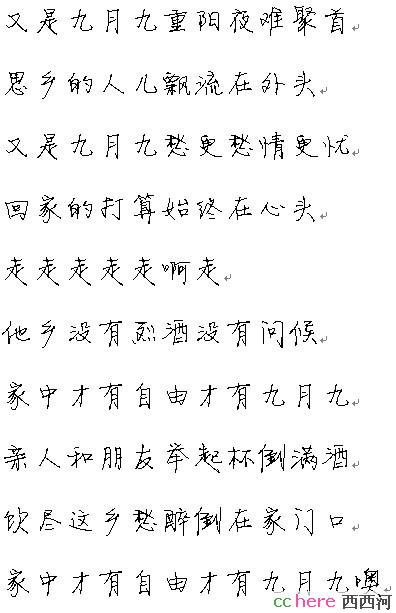 又是九月九重阳夜难聚首
思乡的人儿飘流在外头
又是九月九愁更愁情更忧
回家的打算始终在心头
走走走走走啊走
他乡没有烈酒没有问候
家中才有自由才有九月九
亲人和朋友举起杯倒满酒
饮尽这乡愁醉倒在家门口
家中才有自由才有九月九噢
cc here 西西河